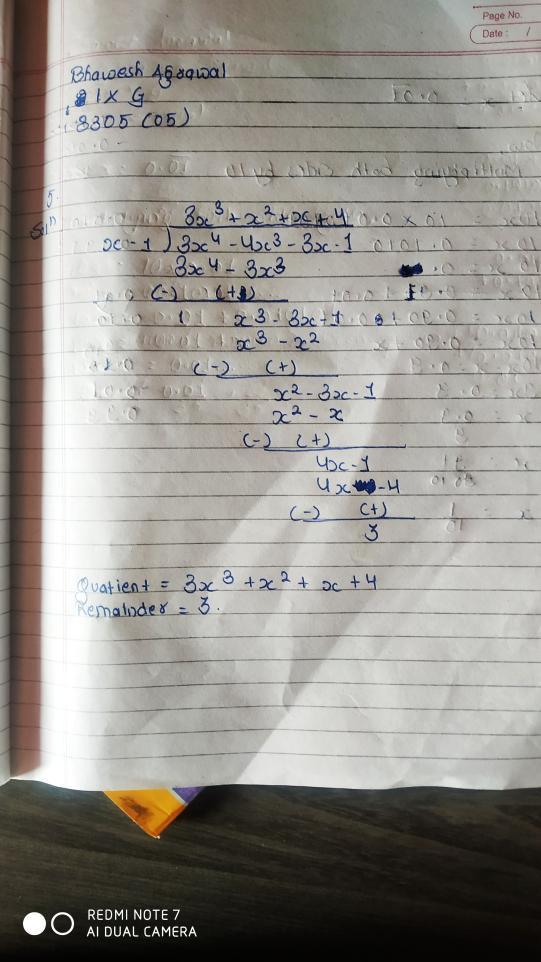 Page No.
Date : /
Bhawesh Agrawal
IX G
8305 (05)
5.
Solⁿ
3x³ + x² + x + 4
x - 1 ) 3x⁴ - 4x³ - 3x - 1
3x⁴ - 3x³
(-) (+)
x³ - 3x + 1
x³ - x²
(-) (+)
x² - 3x - 1
x² - x
(-) (+)
4x - 1
4x - 4
(-) (+)
3
Quatient = 3x³ + x² + x + 4
Remainder = 3.
REDMI NOTE 7
AI DUAL CAMERA